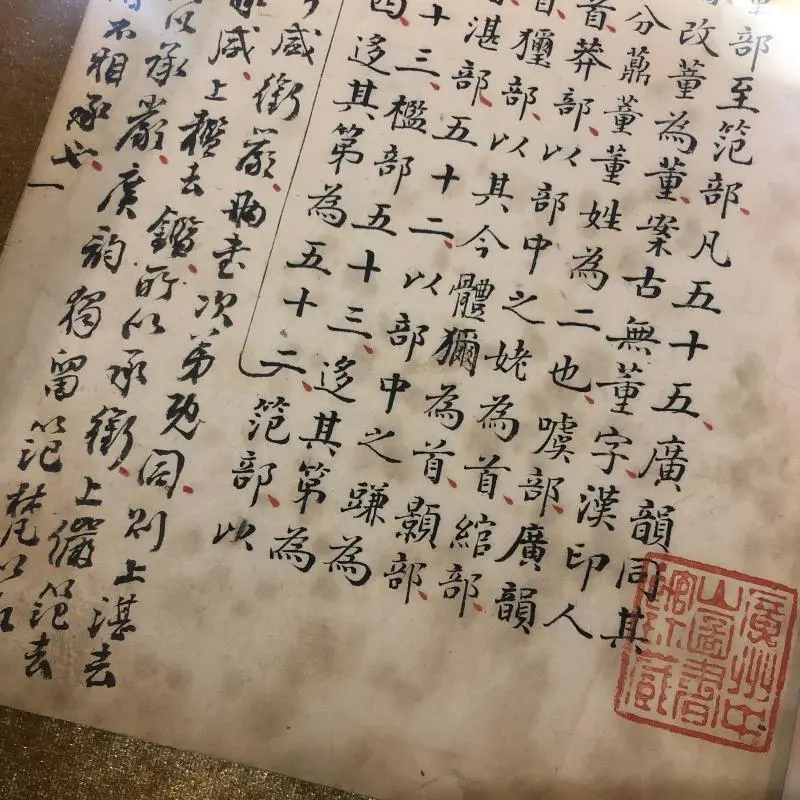 部至范部、凡五十五、廣韻同、其
改董為董、案古無董字、漢印人
分董董姓為二也、噳部、廣韻
首、莽部、以部中之姥為首、綰部、
獼部、以其今體獮為首、顥部、
湛部、五十二、以部中之為
十三、檻部五十三、迻其第為
迻其第為五十二、范部、以
咸銜嚴、兩書次第既同、則上湛去
咸、上檻去鑑、所以承銜、上儼范去
以承嚴、廣韵獨留范梵以
不相承也、一
廣州中山圖書館所藏